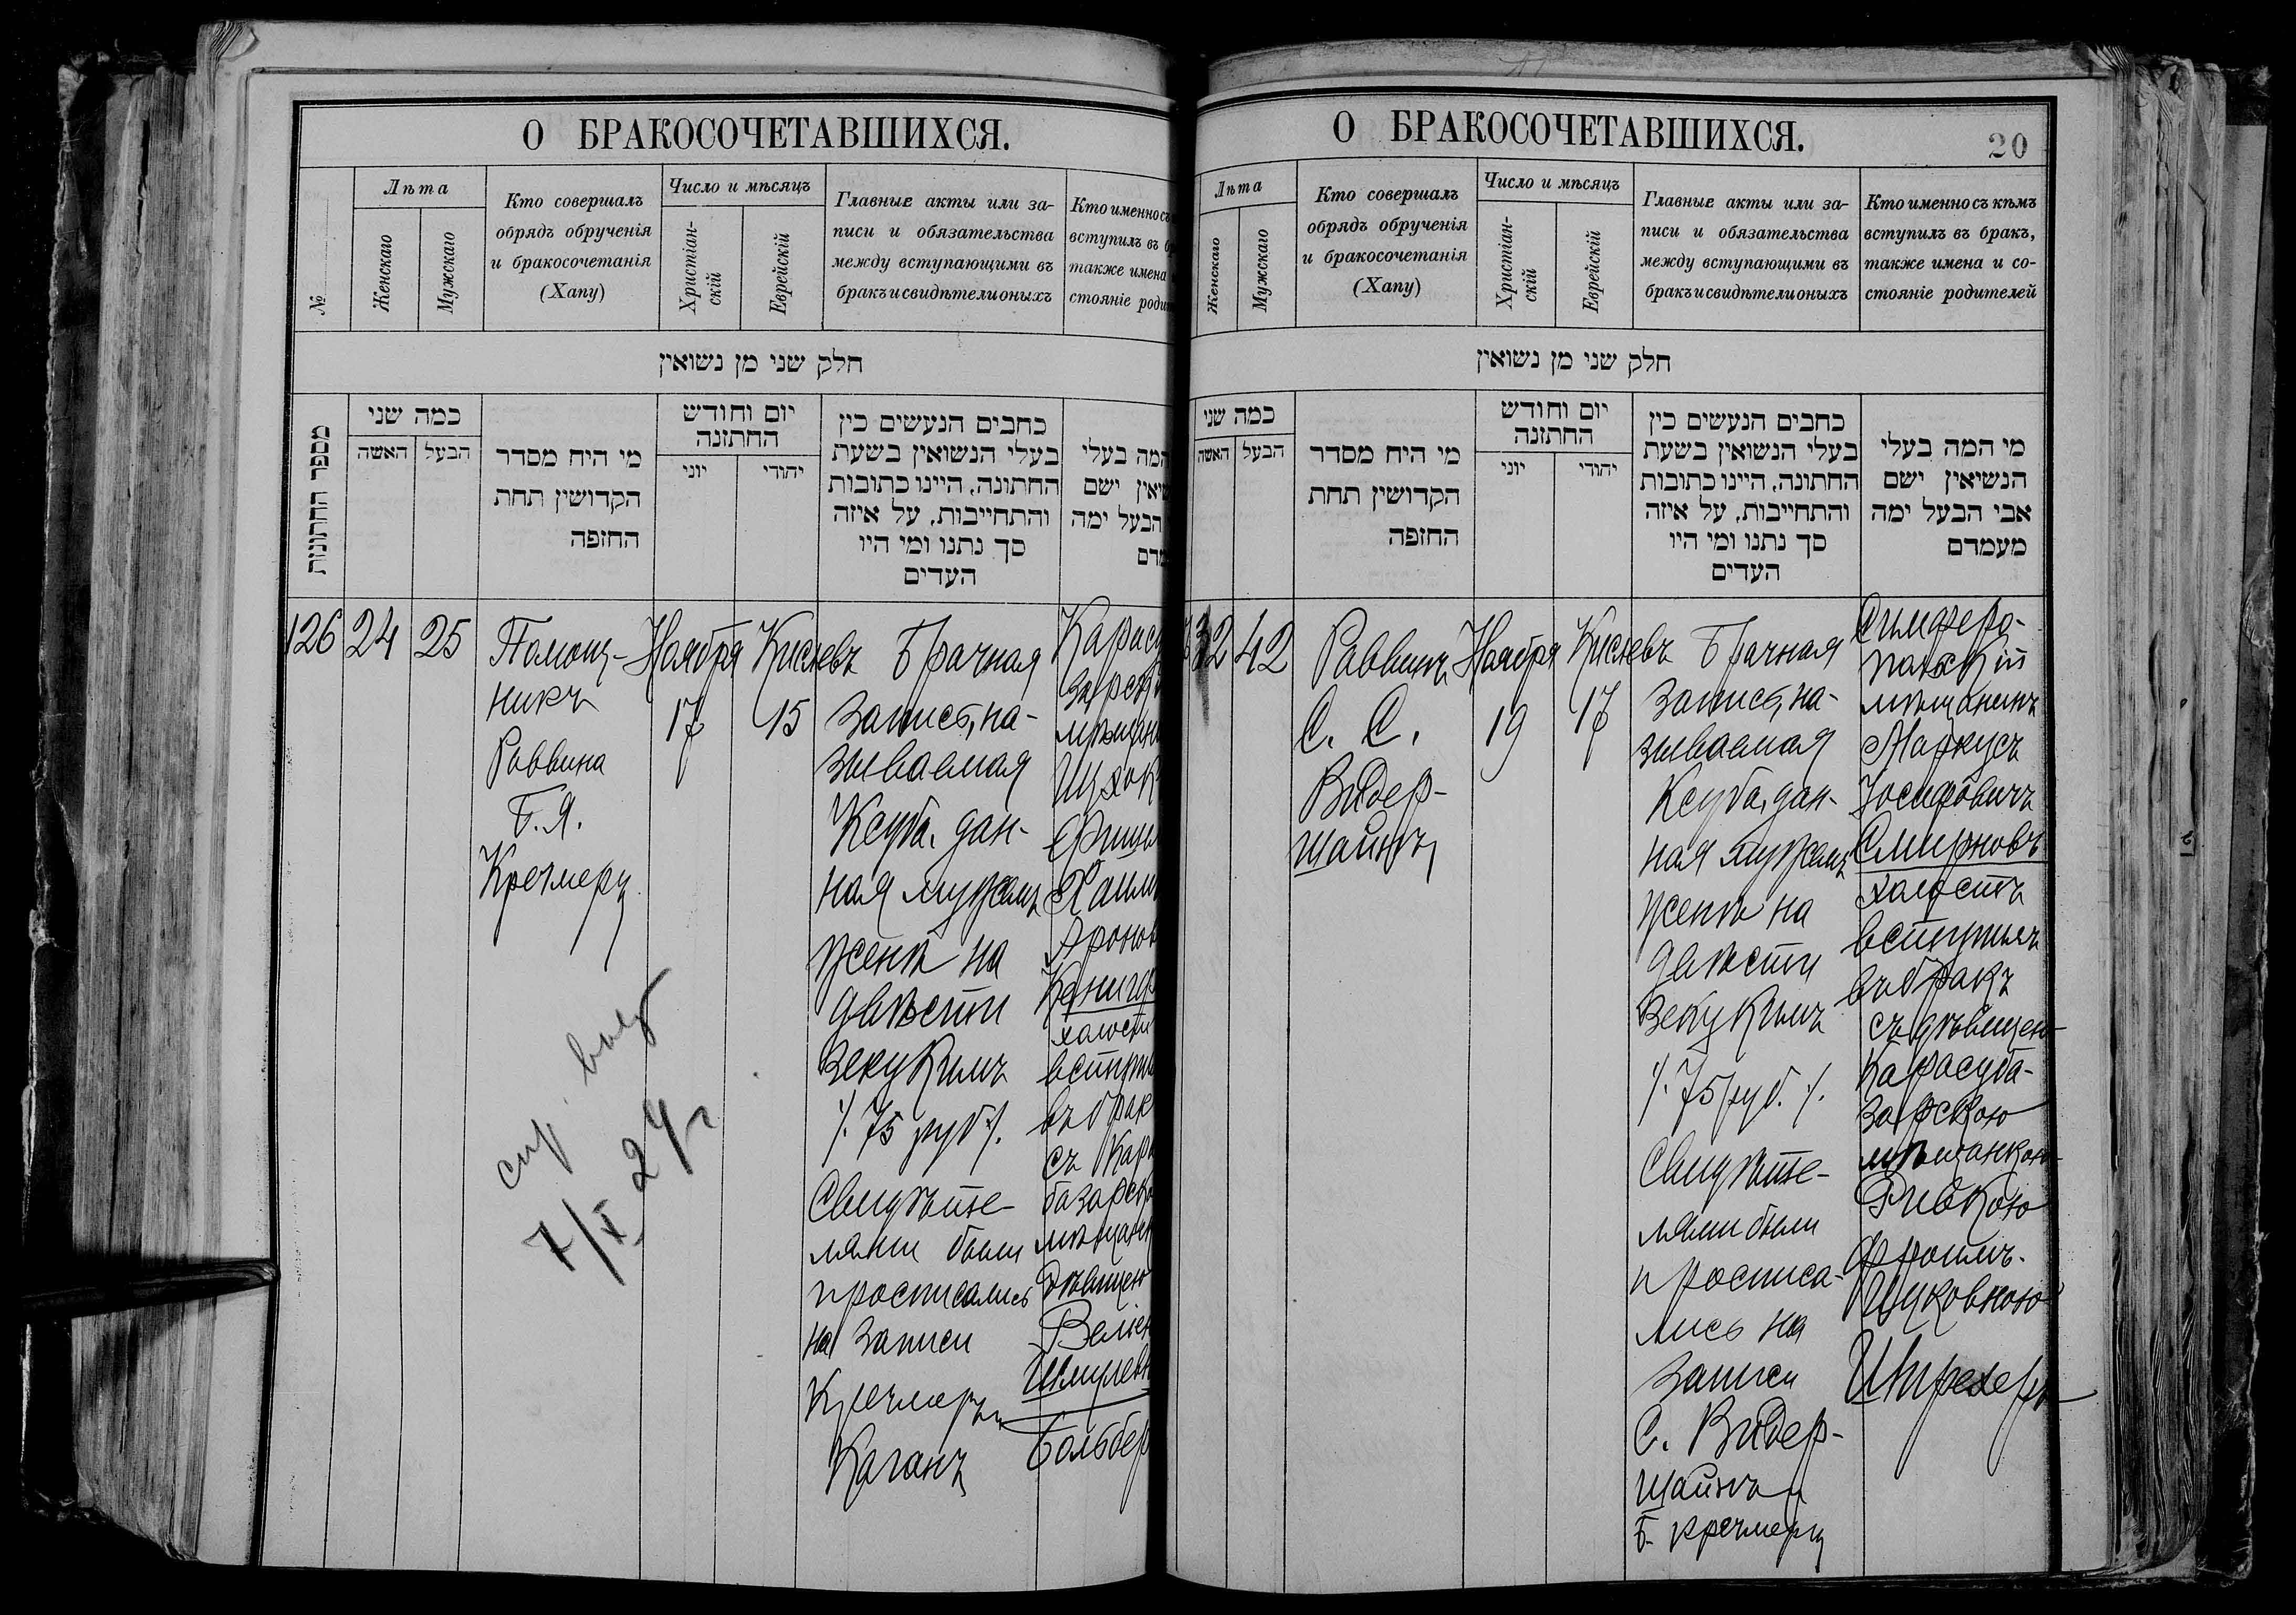 О БРАКОСОЧЕТАВШИХСЯ.
№
Лѣта
Женскаго
Мужскаго
Кто совершалъ
обрядъ обрученія
и бракосочетанія
(Хапу)
Число и мѣсяцъ
Христіан-
скій
Еврейскій
Главные акты или за-
писи и обязательства
между вступающими въ
бракъ и свидѣтели оныхъ
Кто именно съ
вступилъ въ б
также имена
стояніе роди
חלק שני מן נשואין
מספר החתונות
כמה שני
האשה
הבעל
מי היח מסדר
הקדושין תחת
החופה
יום וחודש
החתונה
יוני
יהודי
כתבים הנעשים כין
בעלי הנשואין בשעת
החתונה, היינו כתובות
והתחייבות, על איזה
סך נתנו ומי היו
העדים
המה בעלי
שיאין ישם
הבעל ימה
מדם
126
24
25
Помощ-
никъ
Раввина
Б. Я.
Кречмеръ
Ноября
17
Кислевъ
15
Брачная
запись, на-
зываемая
Ксуба, дан-
ная мужемъ
женѣ на
двѣсти
зекукимъ
/. 75 руб /.
Свидѣте-
лями были
и росписались
на записи
Кречмеръ и
Каганъ
Карасу
зарск
мѣщани
Ицхок
Аронов
холостъ
вступи
въ брак
съ Кара
базарско
мѣщанк
дѣвицею
Шмулевн
Гольбер
7/X 24 г
О БРАКОСОЧЕТАВШИХСЯ.
20
Лѣта
Женскаго
Мужскаго
Кто совершалъ
обрядъ обрученія
и бракосочетанія
(Хапу)
Число и мѣсяцъ
Христіан-
скій
Еврейскій
Главные акты или за-
писи и обязательства
между вступающими въ
бракъ и свидѣтели оныхъ
Кто именно съ кѣмъ
вступилъ въ бракъ,
также имена и со-
стояніе родителей
חלק שני מן נשואין
כמה שני
האשה
הבעל
מי היח מסדר
הקדושין תחת
החופה
יום וחודש
החתונה
יוני
יהודי
כתבים הנעשים כין
בעלי הנשואין בשעת
החתונה, היינו כתובות
והתחייבות, על איזה
סך נתנו ומי היו
העדים
מי המה בעלי
הנשיאין ישם
אבי הבעל ימה
מעמדם
32
42
Раввинъ
С. С.
Видер-
шайнъ
Ноября
19
Кислевъ
17
Брачная
запись, на-
зываемая
Ксуба, дан-
ная мужемъ
женѣ на
двѣсти
зекукимъ
/. 75 руб. /.
Свидѣте-
лями были
и росписа-
лись на
записи
С. Видер-
шайнъ и
Б. Кречмеръ
Симферо-
польскій
мѣщанинъ
Маркусъ
Іосифовичъ
Смирновъ
холостъ
вступилъ
въ бракъ
съ дѣвицею
Карасуба-
зарскою
мѣщанкою
Ривкою
Фроимъ-
Ицковною
Штрехеръ